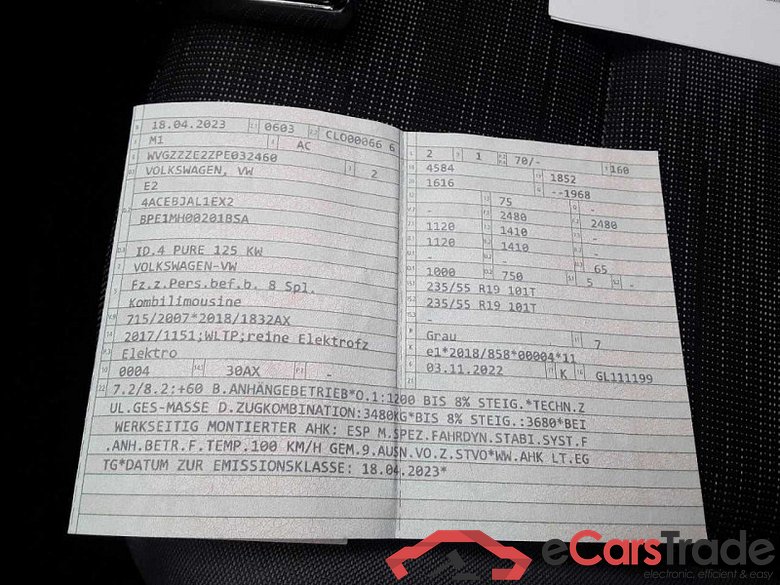 18.04.2023 0603 CLO00066 6
M1 AC
WVGZZZE2ZPE032460
VOLKSWAGEN, VW 2
E2
4ACEBJAL1EX2
BPE1MH00201BSA
ID.4 PURE 125 KW
VOLKSWAGEN-VW
Fz.z.Pers.bef.b. 8 Spl.
Kombilimousine
715/2007*2018/1832AX
2017/1151;WLTP;reine Elektrofz
Elektro
0004 30AX -
2 1 70/- 160
4584 1852
1616 --1968
- 75 -
- 2480 2480
1120 1410 -
1120 1410 -
- - 65
1000 750 5 -
235/55 R19 101T
235/55 R19 101T
-
Grau 7
e1*2018/858*00004*11
03.11.2022 K GL111199
7.2/8.2:+60 B.ANHÄNGEBETRIEB*O.1:1200 BIS 8% STEIG.*TECHN.Z
UL.GES-MASSE D.ZUGKOMBINATION:3480KG*BIS 8% STEIG.:3680*BEI
WERKSEITIG MONTIERTER AHK: ESP M.SPEZ.FAHRDYN.STABI.SYST.F
.ANH.BETR.F.TEMP.100 KM/H GEM.9.AUSN.VO.Z.STVO*WW.AHK LT.EG
TG*DATUM ZUR EMISSIONSKLASSE: 18.04.2023*
eCarsTrade
electronic, efficient & easy